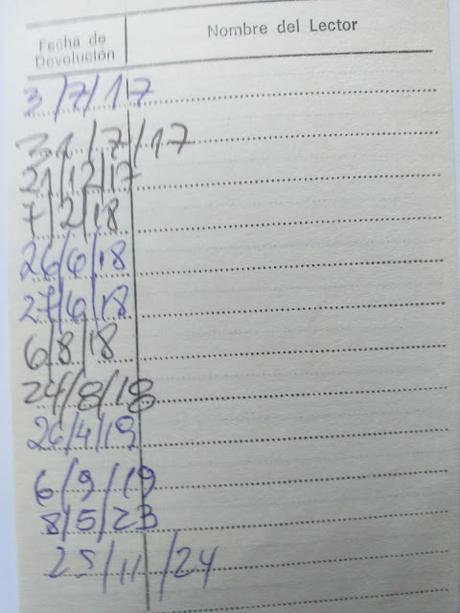 Fecha de Devolución
Nombre del Lector
3/7/17
31/7/17
21/12/17
7/2/18
26/6/18
27/6/18
6/8/18
24/8/18
26/4/19
6/9/19
8/5/23
25/11/24